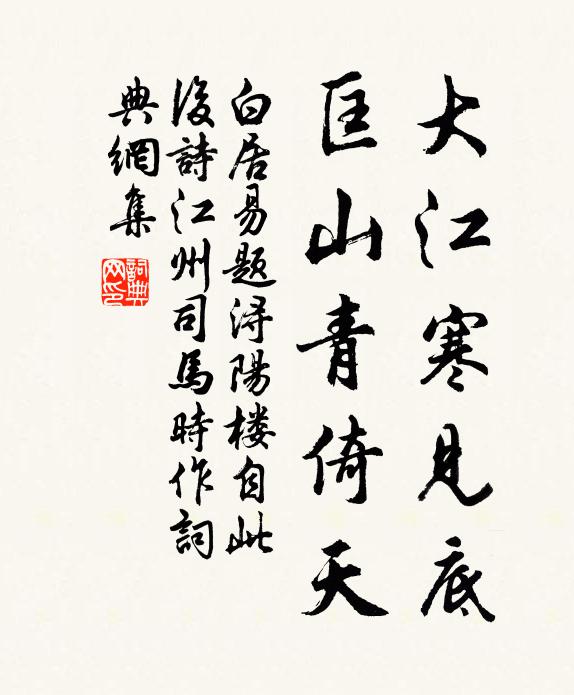 大江寒見底
匡山青倚天
白居易題浔陽楼自此
後詩江州司馬時作詞
典網集
詞典网印